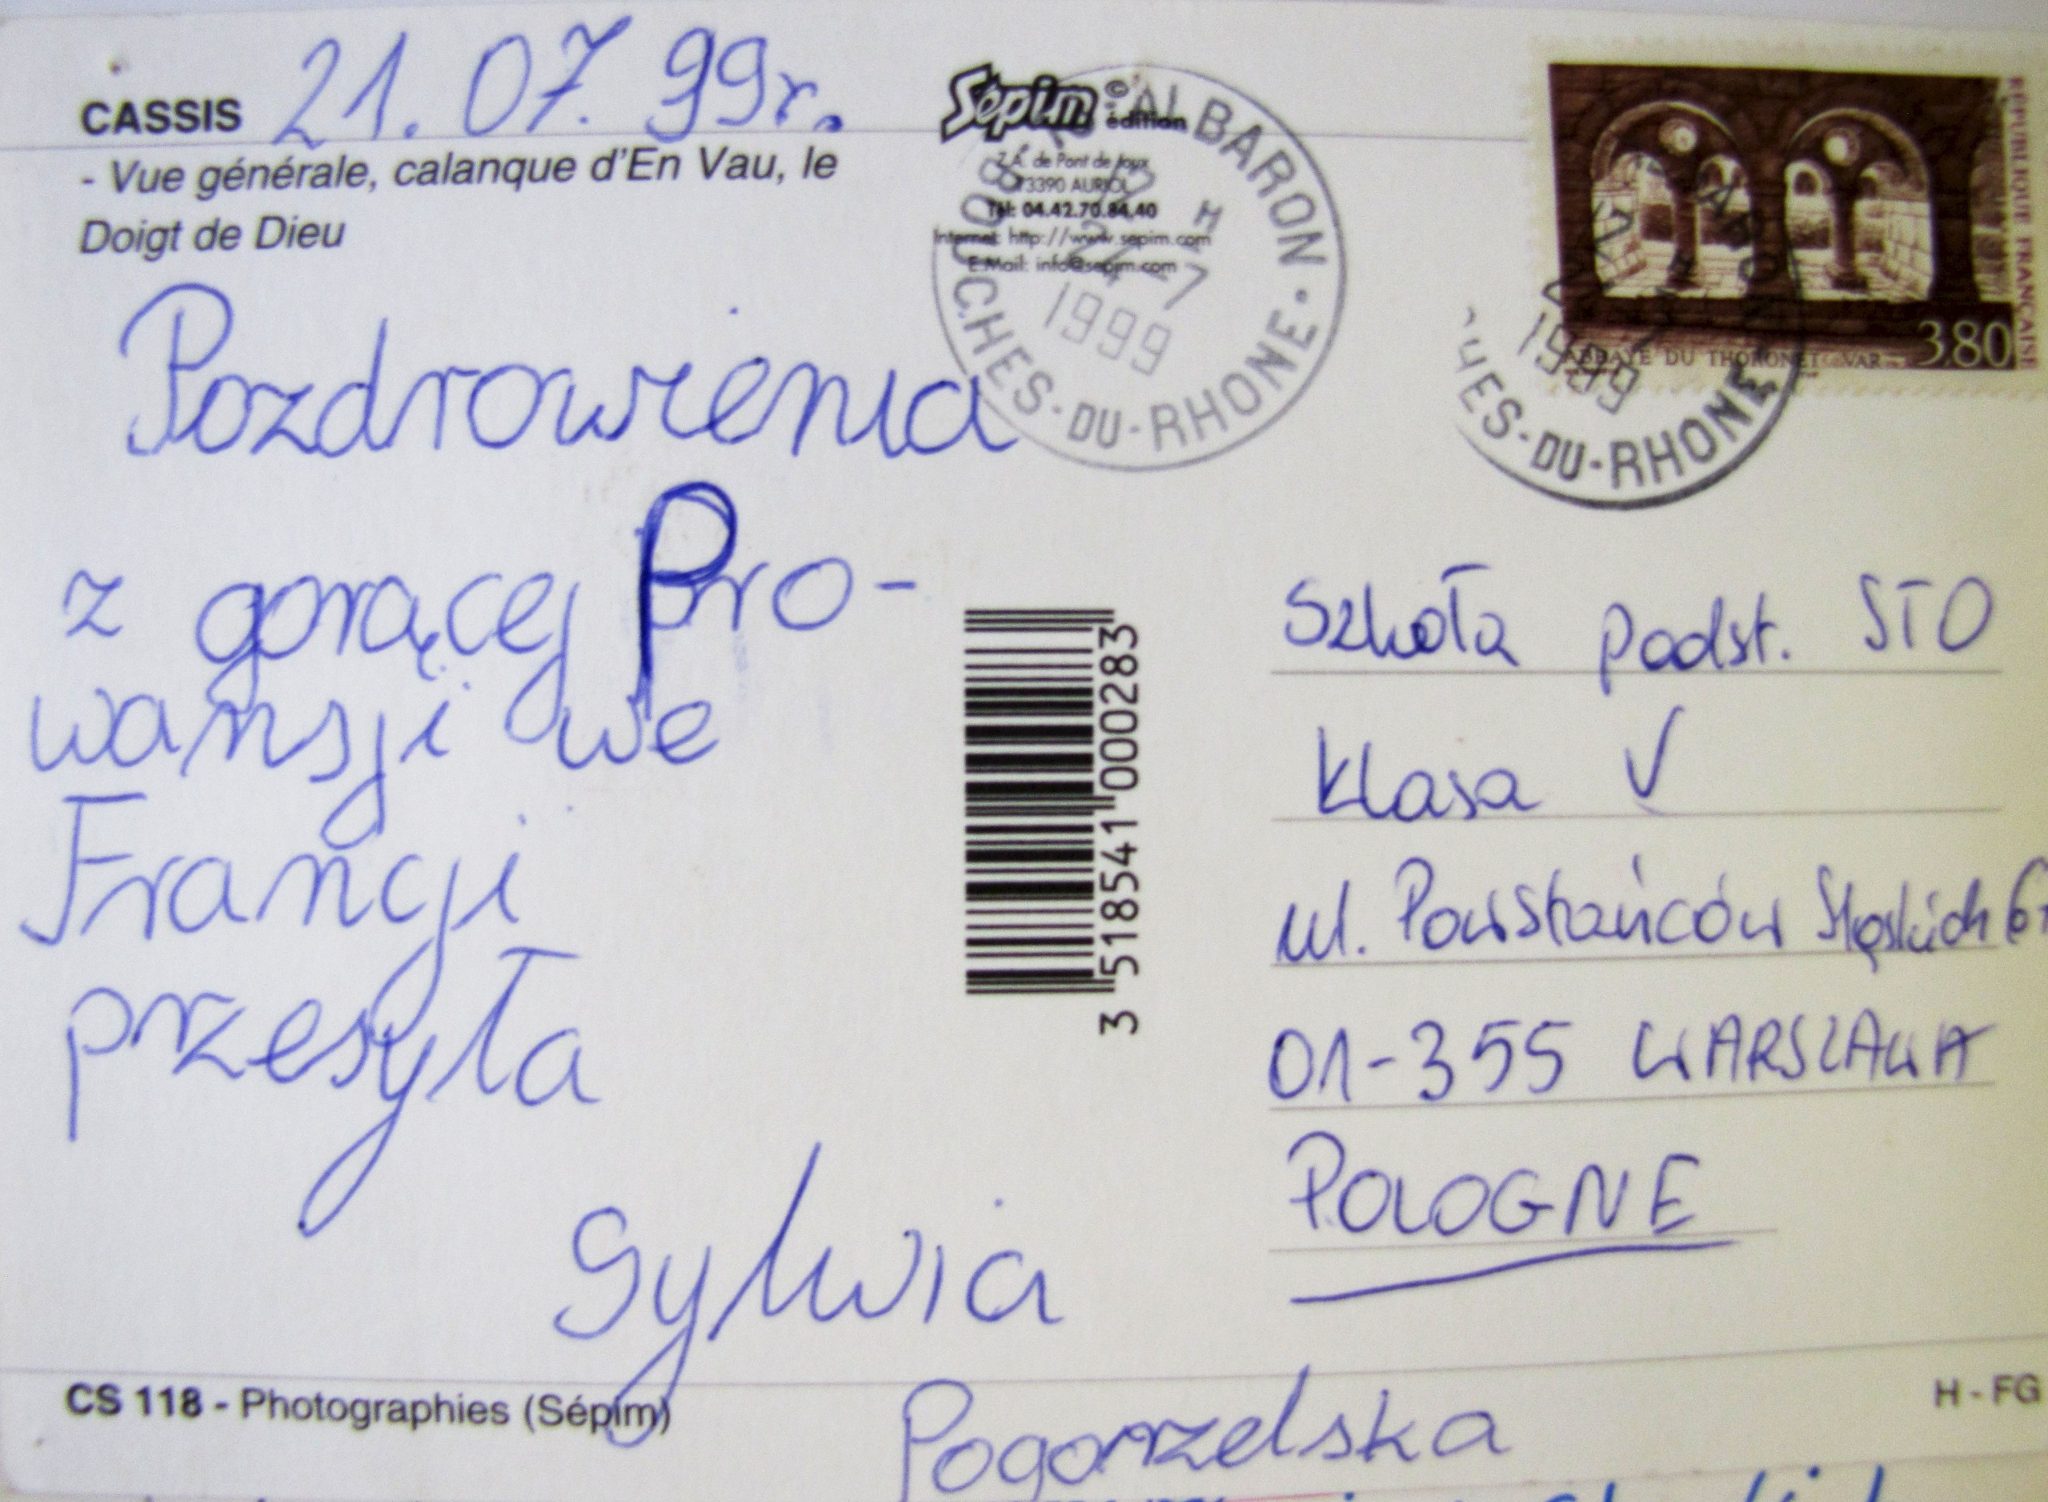 CASSIS 21.07.99r.
- Vue générale, calanque d'En Vau, le
Doigt de Dieu
Pozdrowienia
z gorącej Pro-
wansji we
Francji
przesyła
Sylwia
Pogorzelska
CS 118 - Photographies (Sépim)
Sépim édition
Z.A. de Pont de Joux
13390 AURIOL
Tél: 04.42.70.84.40
Internet: http://www.sepim.com
E.Mail: info@sepim.com
ALBARON
13 H
1999
BOUCHES-DU-RHONE
3 518541 000283
RÉPUBLIQUE FRANÇAISE
3,80
ABBAYE DU THORONET VAR
1999
HES-DU-RHONE
Szkoła podst. STO
Klasa V
ul. Powstańców Śląskich
01-355 WARSZAWA
POLOGNE
H - FG